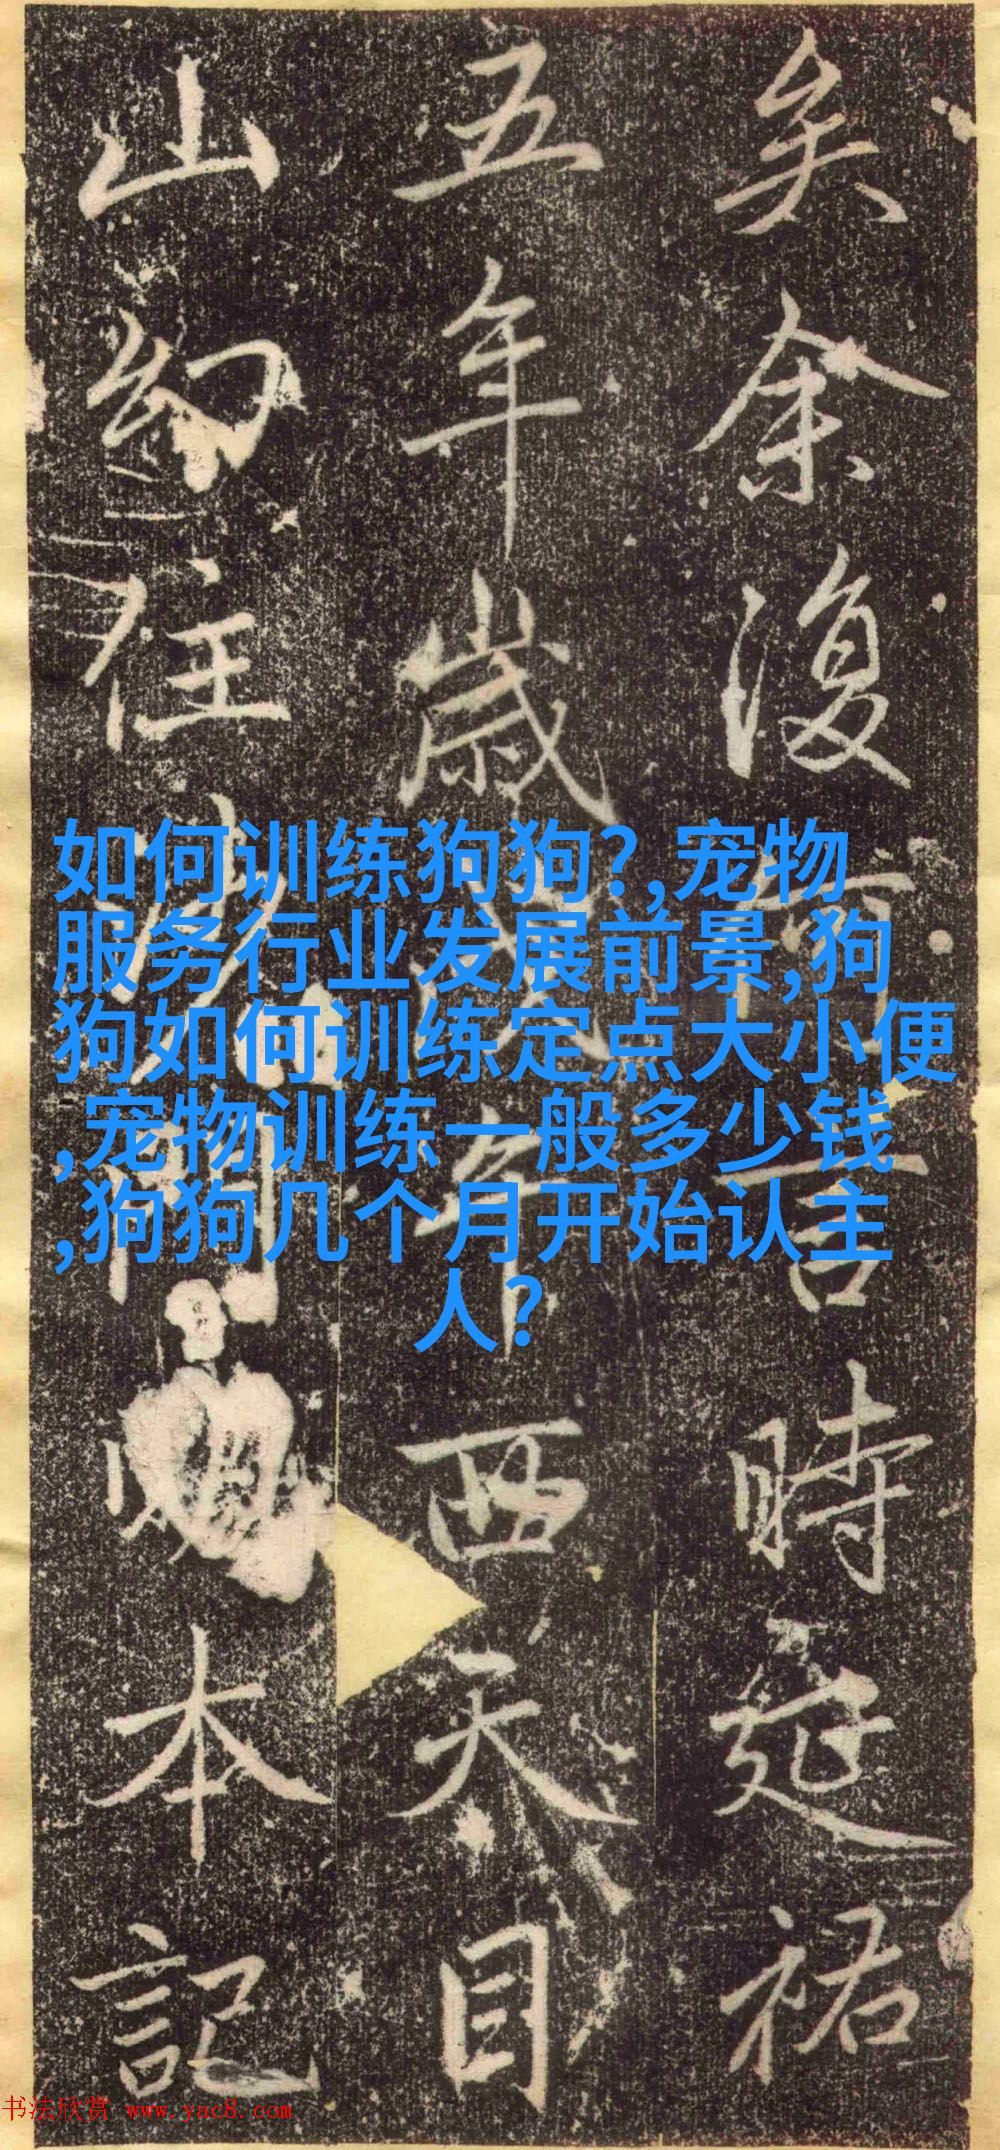 矣余復何言時延祐
五年歲戊午西天目
山幻住沙門明本記
如何训练狗狗?,宠物
服务行业发展前景,狗
狗如何训练定点大小便
,宠物训练一般多少钱
,狗狗几个月开始认主
人?
书法欣赏 www.yac8.com